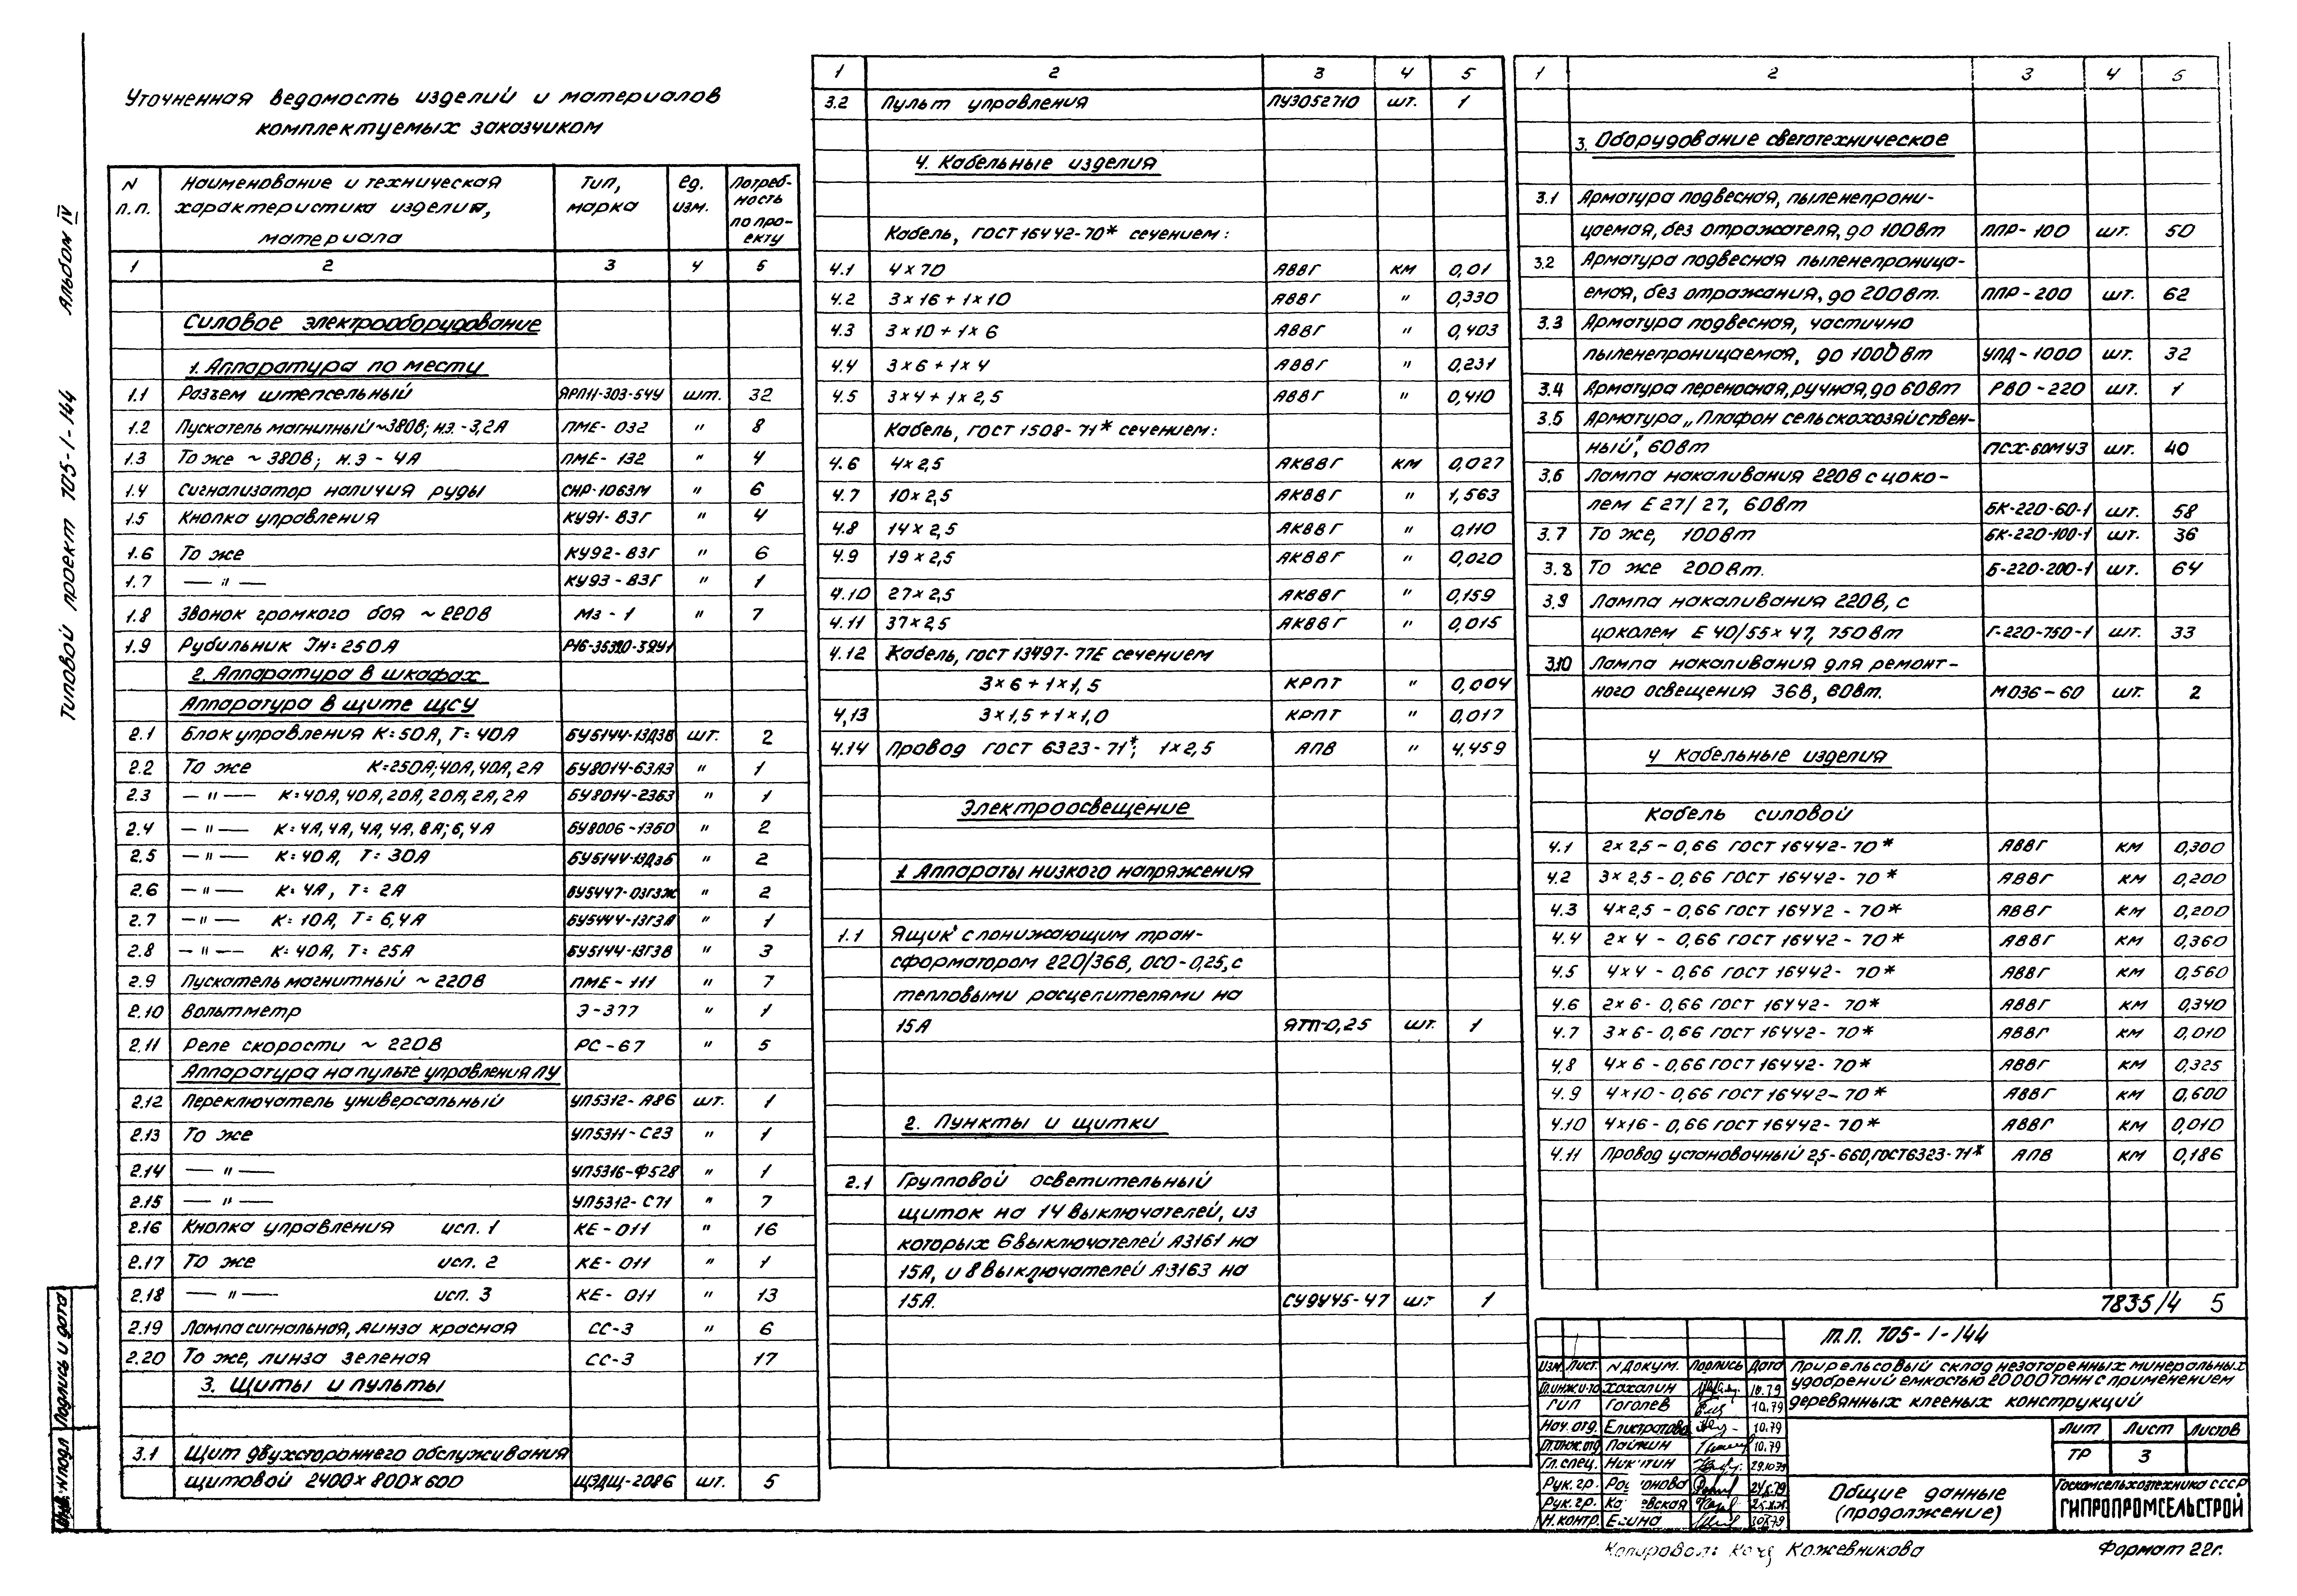 Альбом IV
Типовой проект 105-1-144
Подпись и дата
Инв. № подл
Уточненная ведомость изделий и материалов
комплектуемых заказчиком
N п.п. Наименование и техническая характеристика изделия, материала Тип, марка Ед. изм. Потребность по проекту
1 2 3 4 5
Силовое электрооборудование
1. Аппаратура по месту
1.1 Разъем штепсельный ЯРП11-303-54У шт. 32
1.2 Пускатель магнитный ~380В; н.э. - 3,2А ПМЕ-032 " 8
1.3 То же ~ 380В; н.э - 4А ПМЕ-132 " 4
1.4 Сигнализатор наличия руды СНР-1063М " 6
1.5 Кнопка управления КУ91-ВЗГ " 4
1.6 То же КУ92-ВЗГ " 6
1.7 — " — КУ93-ВЗГ " 1
1.8 Звонок громкого боя ~ 220В МЗ-1 " 7
1.9 Рубильник Iн=250А
2. Аппаратура в шкафах
Аппаратура в щите ЩСУ
2.1 Блок управления К=50А, Т=40А БУ5144-13Д3В шт. 2
2.2 То же К=250А; 40А, 40А, 2А БУ8014-63А3 " 1
2.3 — " — К=40А, 40А, 20А, 20А, 2А, 2А БУ8014-23Б3 " 1
2.4 — " — К=4А, 4А, 4А, 4А, 8А; 6,4А БУ8006-13Б0 " 2
2.5 — " — К=40А, Т=30А БУ5144-13Д3Б " 2
2.6 — " — К=4А, Т=2А БУ5447-03Г3Ж " 2
2.7 — " — К=10А, Т=6,4А БУ5444-13Г3А " 1
2.8 — " — К=40А, Т=25А БУ5144-13Г3В " 3
2.9 Пускатель магнитный ~ 220В ПМЕ-111 " 7
2.10 Вольтметр Э-377 " 1
2.11 Реле скорости ~ 220В РС-67 " 5
Аппаратура на пульте управления ПУ
2.12 Переключатель универсальный УП5312-А86 шт. 1
2.13 То же УП5311-С23 " 1
2.14 — " — УП5316-Ф528 " 1
2.15 — " — УП5312-С71 " 7
2.16 Кнопка управления исп. 1 КЕ-011 " 16
2.17 То же исп. 2 КЕ-011 " 1
2.18 — " — исп. 3 КЕ-011 " 13
2.19 Лампа сигнальная, линза красная СС-3 " 6
2.20 То же, линза зеленая СС-3 17
3. Щиты и пульты
3.1 Щит двухстороннего обслуживания
щитовой 2400×800×600 ЩЭДЩ-2086 шт. 5
1 2 3 4 5
3.2 Пульт управления ПУЭ052710 шт. 1
4. Кабельные изделия
Кабель, ГОСТ 16442-70* сечением:
4.1 4×70 АВВГ км 0,01
4.2 3×16+1×10 АВВГ " 0,330
4.3 3×10+1×6 АВВГ " 0,403
4.4 3×6+1×4 АВВГ " 0,231
4.5 3×4+1×2,5 АВВГ " 0,410
Кабель, ГОСТ 1508-71* сечением:
4.6 4×2,5 АКВВГ км 0,027
4.7 10×2,5 АКВВГ " 1,563
4.8 14×2,5 АКВВГ " 0,110
4.9 19×2,5 АКВВГ " 0,020
4.10 27×2,5 АКВВГ " 0,159
4.11 37×2,5 АКВВГ " 0,015
4.12 Кабель, ГОСТ 13497-77Е сечением
3×6+1×1,5 КРПТ " 0,004
4,13 3×1,5+1×1,0 КРПТ " 0,017
4.14 Провод ГОСТ 6323-71*; 1×2,5 АПВ " 4,459
Электроосвещение
1. Аппараты низкого напряжения
1.1 Ящик с понижающим тран-
сформатором 220/36В, ОСО-0,25, с
тепловыми расцепителями на
15А ЯТП-0,25 шт. 1
2. Пункты и щитки
2.1 Групповой осветительный
щиток на 14 выключателей, из
которых 6 выключателей А3161 на
15А, и 8 выключателей А3163 на
15А. СУ9445-47 шт 1
1 2 3 4 5
3. Оборудование светотехническое
3.1 Арматура подвесная, пыленепрони-
цаемая, без отражателя, до 100вт ППР-100 шт. 50
3.2 Арматура подвесная пыленепроница-
емая, без отражания, до 200вт. ППР-200 шт. 62
3.3 Арматура подвесная, частично
пыленепроницаемая, до 1000вт УПД-1000 шт. 32
3.4 Арматура переносная, ручная, до 60вт РВО-220 шт. 1
3.5 Арматура „Плафон сельскохозяйствен-
ный", 60вт ПСХ-60МУ3 шт. 40
3.6 Лампа накаливания 220В с цоко-
лем Е27/27, 60вт БК-220-60-1 шт. 58
3.7 То же, 100вт БК-220-100-1 шт. 36
3.8 То же 200вт. Б-220-200-1 шт. 64
3.9 Лампа накаливания 220в, с
цоколем Е 40/55×47, 750вт Г-220-750-1 шт. 33
3.10 Лампа накаливания для ремонт-
ного освещения 36В, 60вт. МО36-60 шт. 2
4 Кабельные изделия
Кабель силовой
4.1 2×2,5-0,66 ГОСТ 16442-70* АВВГ км 0,300
4.2 3×2,5-0,66 ГОСТ 16442-70* АВВГ км 0,200
4.3 4×2,5-0,66 ГОСТ 16442-70* АВВГ км 0,200
4.4 2×4-0,66 ГОСТ 16442-70* АВВГ км 0,360
4.5 4×4-0,66 ГОСТ 16442-70* АВВГ км 0,560
4.6 2×6-0,66 ГОСТ 16442-70* АВВГ км 0,340
4.7 3×6-0,66 ГОСТ 16442-70* АВВГ км 0,010
4,8 4×6-0,66 ГОСТ 16442-70* АВВГ км 0,325
4.9 4×10-0,66 ГОСТ 16442-70* АВВГ км 0,600
4.10 4×16-0,66 ГОСТ 16442-70* АВВГ км 0,010
4.11 Провод установочный 2,5-660, ГОСТ 6323-71* АПВ км 0,186
7835/4 5
т.п. 105-1-144
Изм. Лист. N докум. Подпись Дата
Прирельсовый склад незатаренных минеральных
удобрений емкостью 20 000 тонн с применением
деревянных клееных конструкций
Гл.инж.и-та Хохалин 10.79
ГИП Гоголев 10.79
Нач. отд. Елистратова 10.79
Гл.инж.отд Пайкин 10.79
Гл. спец. Никитин 29.10.79
Рук. гр.
Рук. гр.
Н. контр. Есина
Лит Лист Листов
ТР 3
Общие данные
(продолжение)
Госкомсельхозтехника СССР
ГИПРОПРОМСЕЛЬСТРОЙ
Копировал: Кожевникова
Формат 22г.